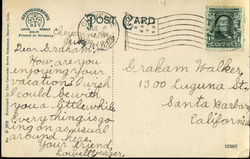 POST CARD
Dear Graham:
How are you
enjoying your
vacation? I wish
I could be with
you a little while
Everything is go-
ing on as usual
around here.
Your friend,
Graham Walker,
1300 Laguna St.,
Santa Barbara
California